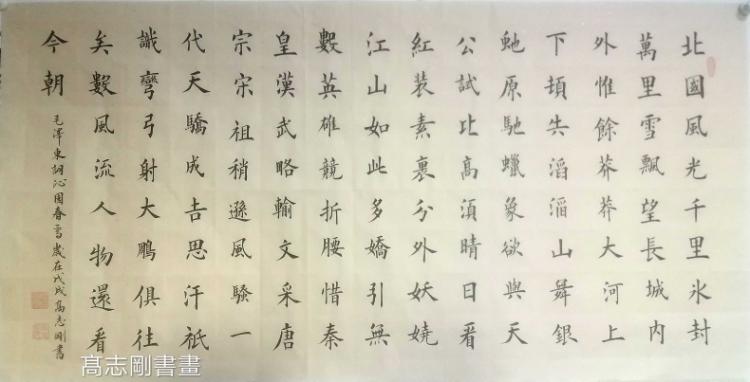 北國風光千里氷封
萬里雪飄望長城內
外惟餘莽莽大河上
下頓失滔滔山舞銀
虵原馳蠟象欲與天
公試比高須晴日看
紅装素裹分外妖嬈
江山如此多嬌引無
數英雄競折腰惜秦
皇漢武略輸文采唐
宗宋祖稍遜風騷一
代天驕成吉思汗祇
識彎弓射大鵬俱往
矣數風流人物還看
今朝
毛澤東詞沁園春雪歲在戊戌高志剛書
髙志剛書畫